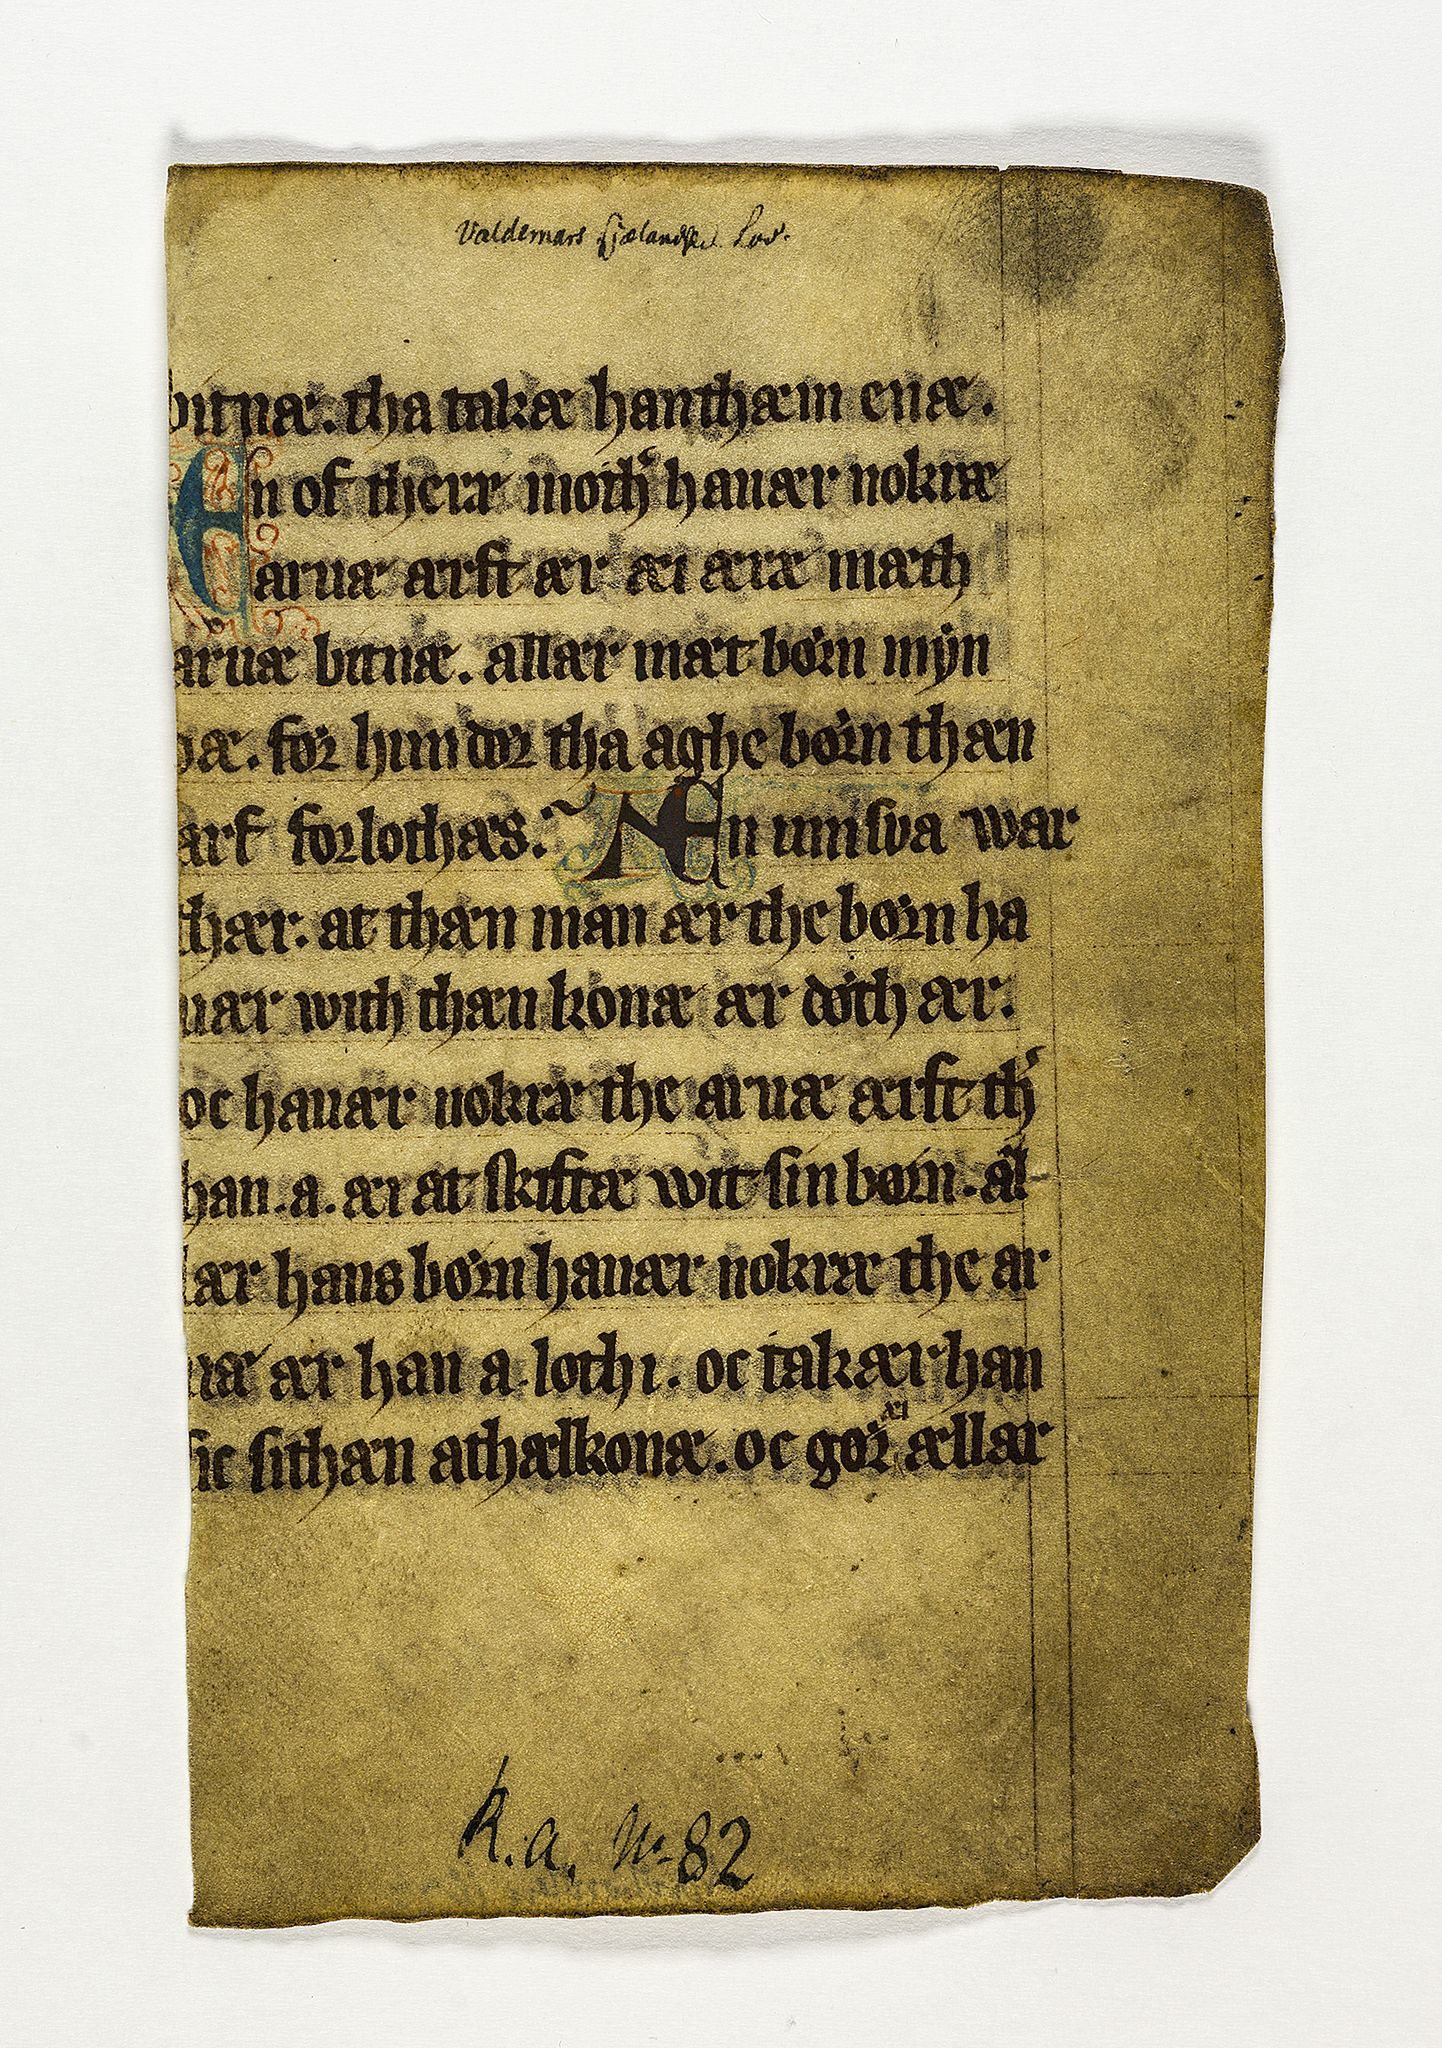 Valdemars sjælandske Lov.
vitnæ. tha takæ han thæm enæ.
En of theræ moth̛ hauær nokræ
aruæ ærft ær æi æræ mæth
aruæ vitnæ. allær mæt børn myn
næ. for hundor tha aghe børn thæn
arf forlothæs. Æn um sva war
thær. at thæn man ær the børn ha
uær with thæn konæ ær døth ær.
oc hauær nokræ the aruæ ærft th̛
han. a. æi at skiftæ wit sin børn. al
lær hans børn hauær nokræ the ar
uæ ær han a lothi. oc takær han
sic sithæn athælkonæ. oc gør æi ællær
K. a. No 82